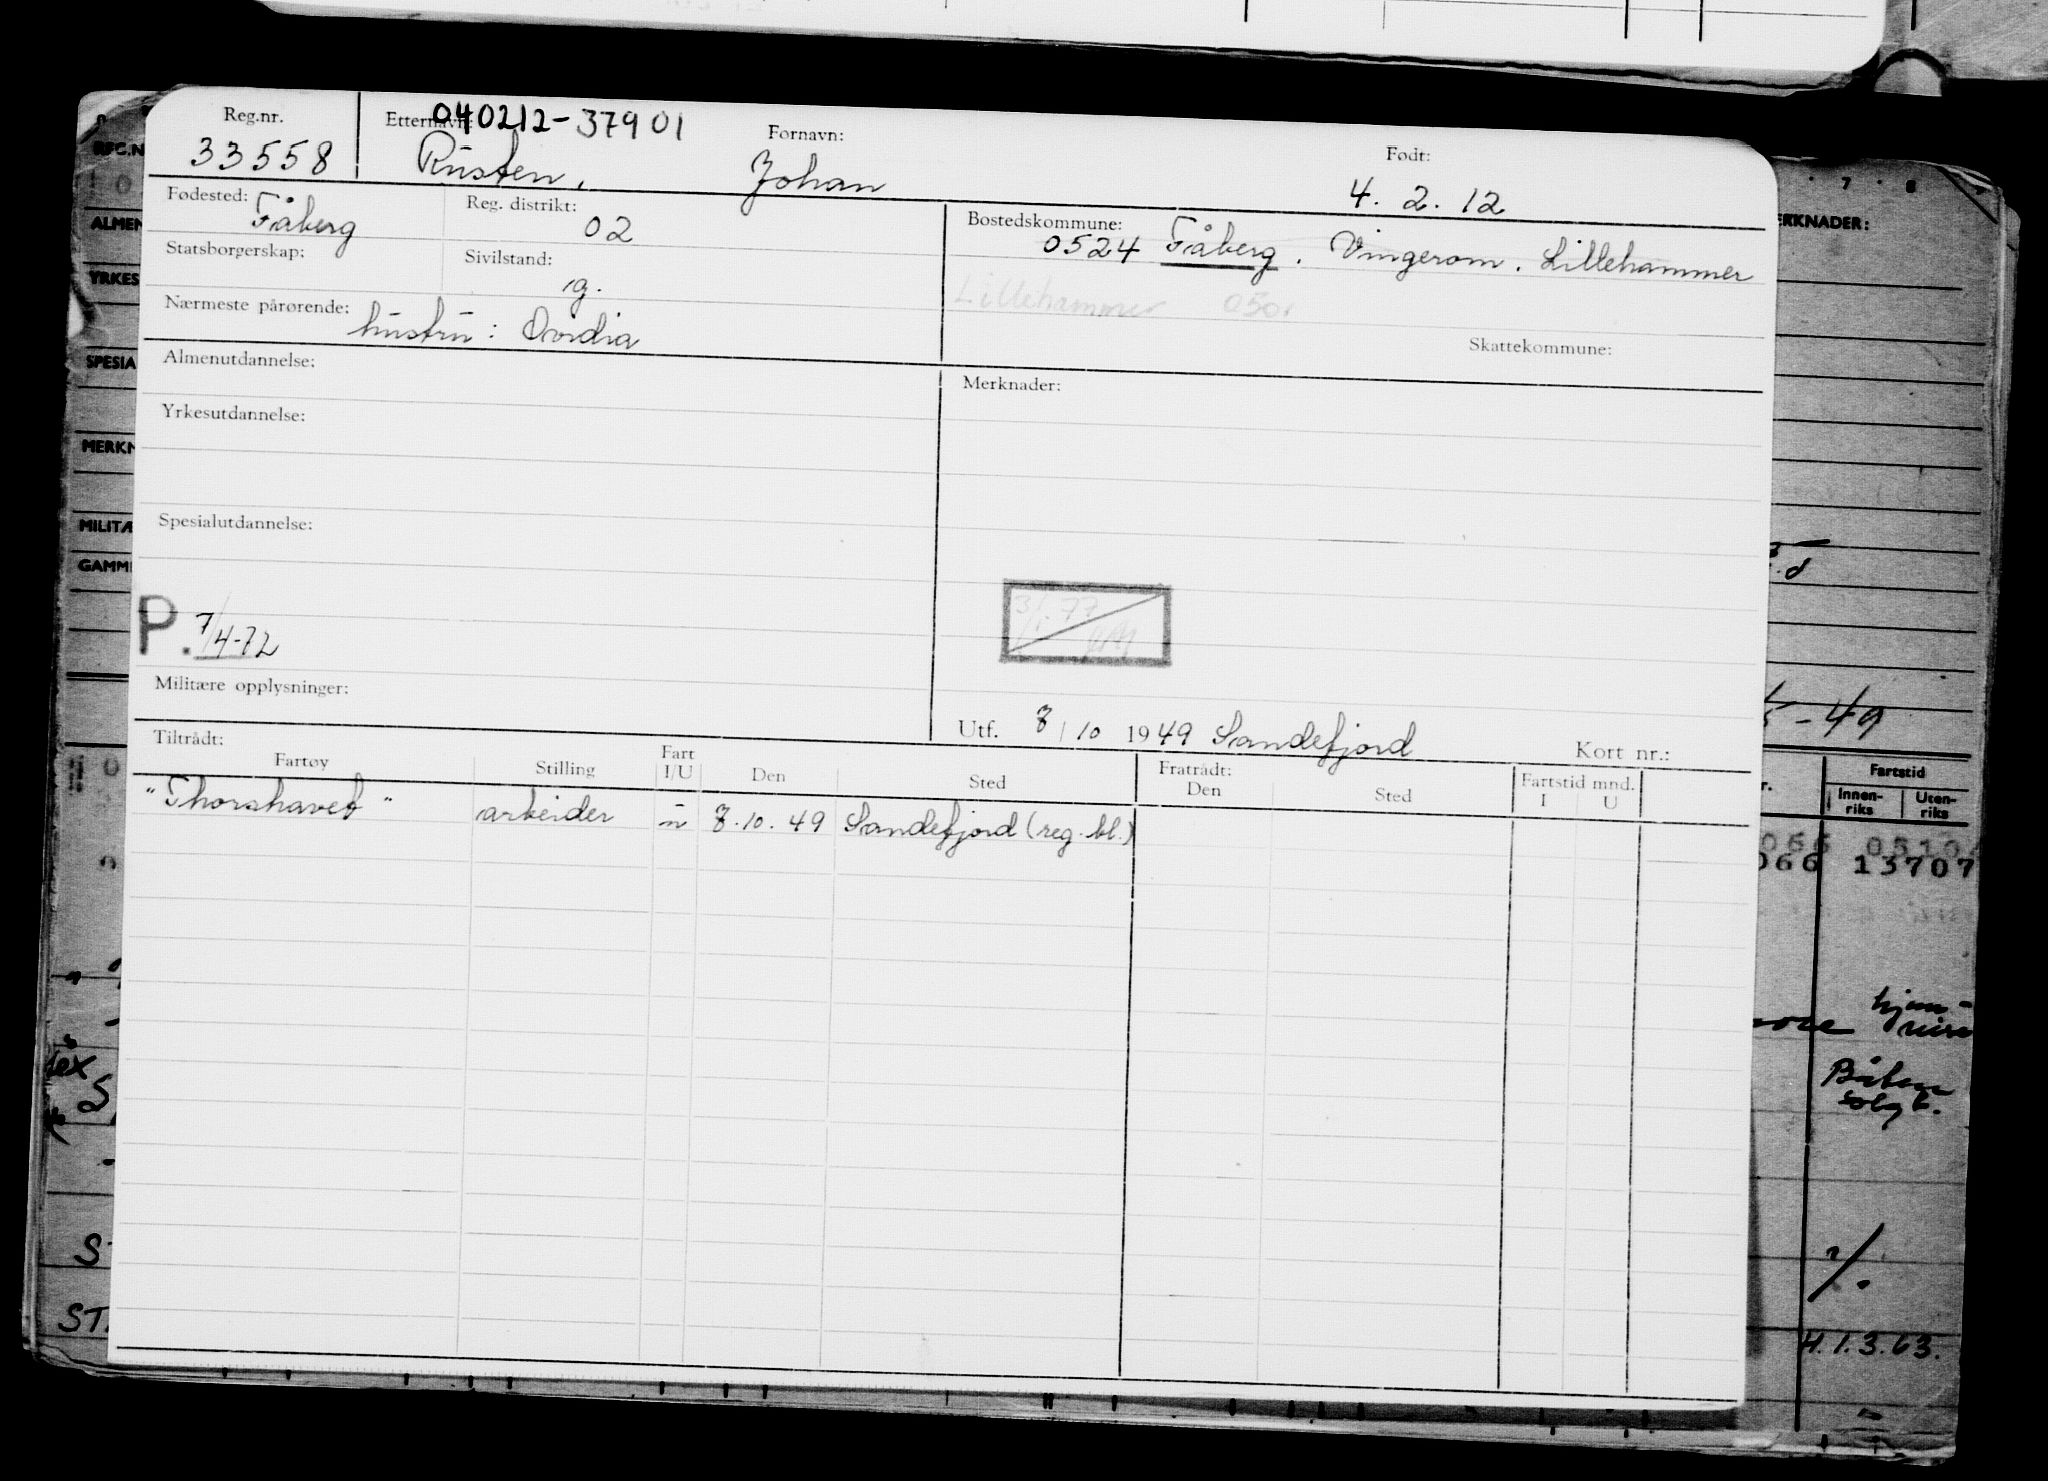 Reg.nr.
33558
Etternavn:
040212-37901
Rusten,
Fornavn:
Johan
Født:
4. 2. 12
Fødested:
Fåberg
Reg. distrikt:
02
Bostedskommune:
0524 Fåberg. Vingerom. Lillehammer
Lillehammer 050
Statsborgerskap:
Sivilstand:
g.
Nærmeste pårørende:
hustru: Dordia
Skattekommune:
Almenutdannelse:
Merknader:
Yrkesutdannelse:
Spesialutdannelse:
P. 7/4-72
3/1.77
Militære opplysninger:
Utf. 8/10 1949 Sandefjord
Kort nr.:
Tiltrådt:
Fartøy Stilling Fart I/U Den Sted
Fratrådt:
Den Sted
Fartstid mnd.
I U
"Thorshavet" arbeider u 8.10.49 Sandefjord (reg. bl.)
REG.N
ALMEN
YRKES
SPESIA
MERKN
MILITÆ
GAMM
7 8
ERKNADER:
-49
Fartstid
Innen-
riks
Uten-
riks
066 13707
hjem-
reise
Båten
solgt.
4.1.3.63.